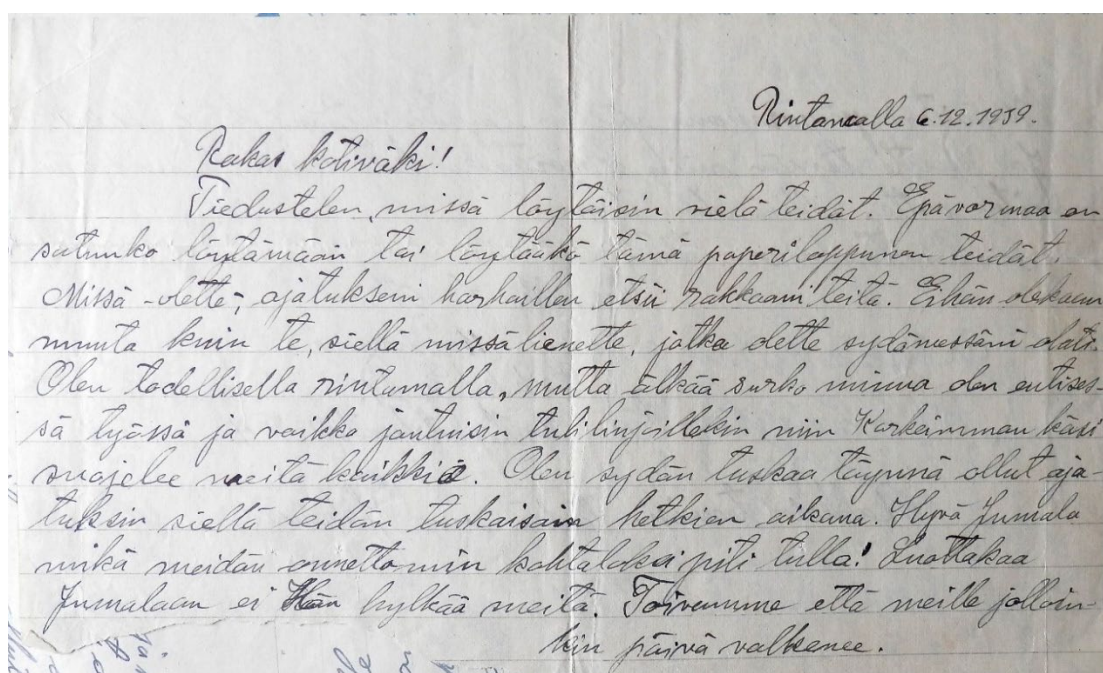 Rintamalla 6.12.1939.
Rakas kotiväki!
Tiedustelen, missä löytäisin vielä teidät. Epävarmaa on
satunko löytämään tai löytääkö tämä paperilappunen teidät.
Missä - olette -, ajatukseni harhaillen etsii rakkaani teitä. Eihän olekaan
muuta kuin te, siellä missä lienette, jotka olette sydämessäni
Olen todellisella rintamalla, mutta älkää surko minua olen entises-
sä työssä ja vaikka joutuisin tulilinjoillekin niin Korkeimman käsi
suojelee meitä kaikkia. Olen sydän tuskaa täynnä ollut aja-
tuksin siellä teidän tuskaisain hetkien aikana. Hyvä Jumala
mikä meidän onnettomin kohtaloksi piti tulla! Luottakaa
Jumalaan ei Hän hylkää meitä. Toivomme että meille jolloin-
kin päivä valkenee.